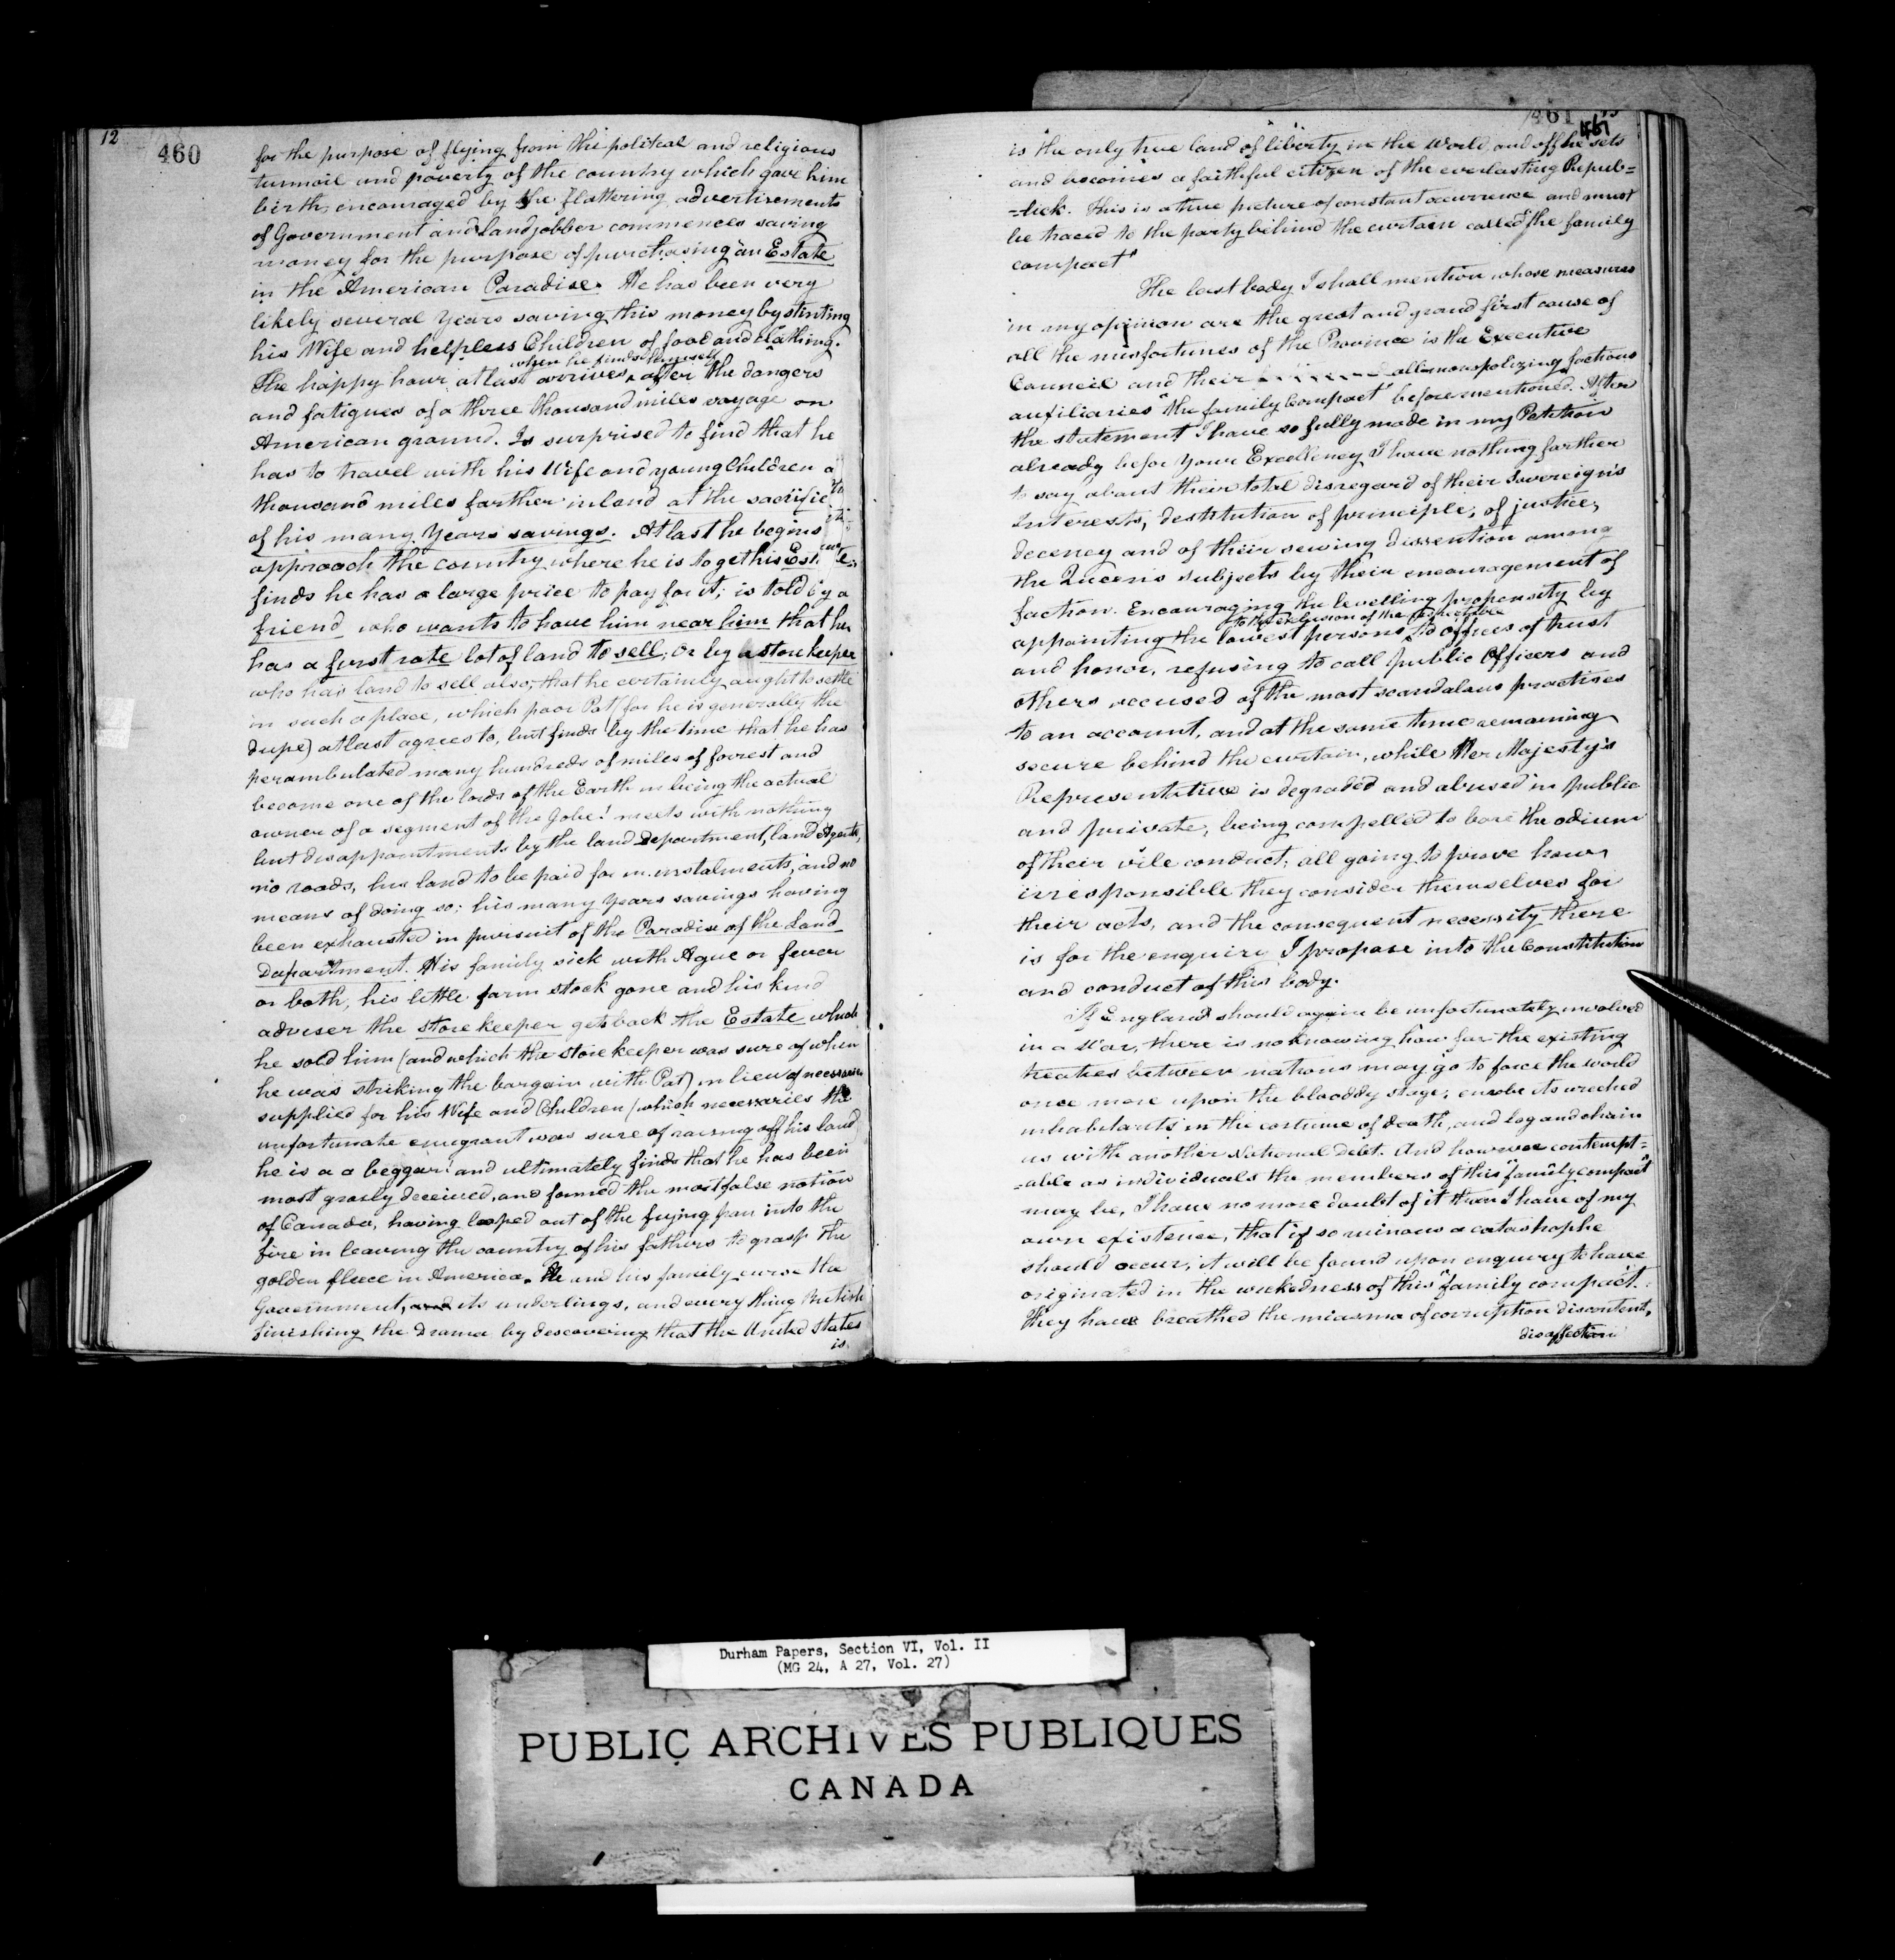 12
460
for the purpose of flying from the politcal and religious
turmoil and poverty of the country which gave him
birth, encouraged by the flattering advertisements
of Government and landjobber commences saving
money for the purpose of purchasing "an Estate
in the American Paradise. He has been very
likely several Years saving this money by stinting
his Wife and helpless Children of food and clathing.
when he finds himself
The happy hour at last arrives, after the dangers
and fatigues of a three thousand miles voyage on
American ground. Is surprised to find that he
has to travel with his Wife and young Children a
thousand miles farther inland at the sacrifice
of his many Years savings. At last he begins to
approach the country where he is to get his Estate
finds he has a large price to pay for it; is told by a
friend who wants to have him near him that he
has a first rate lot of land to sell; or by a storekeeper
who has land to sell also; that he certainly aught to settle
in such a place, which poor Pat (for he is generally the
dupe) at last agrees to, but finds by the time that he has
perambulated many hundreds of miles of forrest and
become one of the lords of the Earth in being the actual
owner of a segment of the Gobe! meets with nothing
but disappointments by the land Department, land Agents,
no roads, his land to be paid for in instalments, and no
means of doing so; his many Years savings having
been exhausted in pursuit of the Paradise of the Land
Department. His family sick with Ague or fever
or both, his little farm stock gone and his kind
adviser the storekeeper gets back the Estate which
he sold him (and which the storekeeper was sure of when
he was striking the bargain with Pat) in lieu of necessaries
supplied for his Wife and Children (which necessaries the
unfortunate emigrant was sure of raising off his land
he is a a beggar! and ultimately finds that he has been
most grosly deceived, and formed the most false notion
of Canada, having leaped out of the frying pan into the
fire in leaving the country of his fathers to grasp the
golden fleece in America. He and his family curse the
Government, and its underlings, and every thing British
finishing the Drama by descovering that the United States
is
461
461
is "the only true land of liberty in the World, and off he sets
and becomes a faithful citizen of the everlasting Repub=
=lick. This is a true picture of constant occurrence and must
be traced to the party behind the curtain called "the family
compact"
The last body I shall mention whose measures
in my opinion are the great and grand first cause of
all the misfortunes of the Province is the Executive
Council and their all monopolizing factious
auxiliaries "the family Compact" before mentioned. After
the statement I have so fully made in my Petition
already befor Your Excellency I have nothing farther
to say about their total disregard of their Sovereign's
Interests, destitution of principle, of justice,
decency and of their sewing dissention among
the Queen's subjects by their encouragement of
faction. Encouraging the levelling propensity by
to the exclusion of the respectable
appointing the lowest persons to offices of trust
and honor, refusing to call public Officers and
others accused of the most scandalous practises
to an account, and at the same time remaining
secure behind the curtain, while Her Majesty's
Representative is degraded and abused in public
and private, being compelled to bare the odium
of their vile conduct; all going to prove how
irresponsible they consider themselves for
their acts, and the consequent necessity there
is for the enquiry I propose into the Constitution
and conduct of this body.
If England should again be unfortunately involved
in a War, there is no knowing how far the existing
treaties between nations may go to force the world
once more upon the blooddy stage; enrobe its wreched
inhabitants in the costume of death, and log and chain
us with another National Debt. And however contempt=
=able as individuals the members of this "family compact"
may be, I have no more doubt of it than I have of my
own existence, that if so ruinous a catastrophe
should occur, it will be found upon enquiry to have
originated in the wickedness of this "family compact".
They have breathed the miasma of corruption discontent,
disaffection
Durham Papers, Section VI, Vol. II
(MG 24, A 27, Vol. 27)
PUBLIC ARCHIVES PUBLIQUES
CANADA